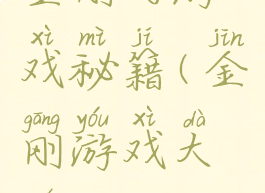 xì mì jí jīn
戏秘籍(金
gāng yóu xì dà
刚游戏大